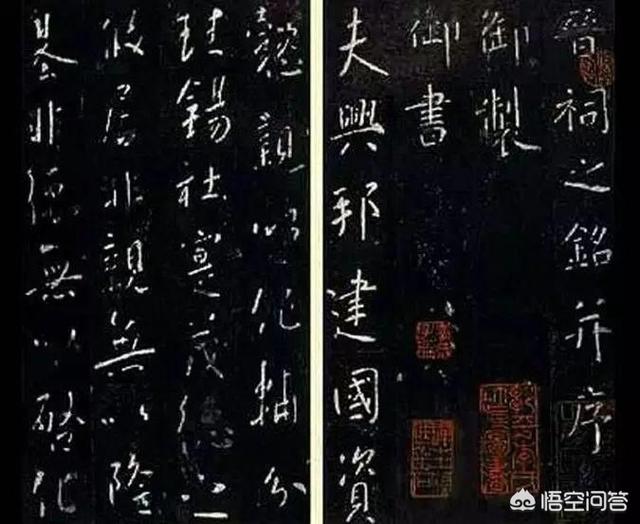 晉祠之銘并序
御製
御書
夫興邦建國資
懿親以作輔分
珪錫社寔茂德之
攸居非親無以隆
基非德無以啓化
悟空问答